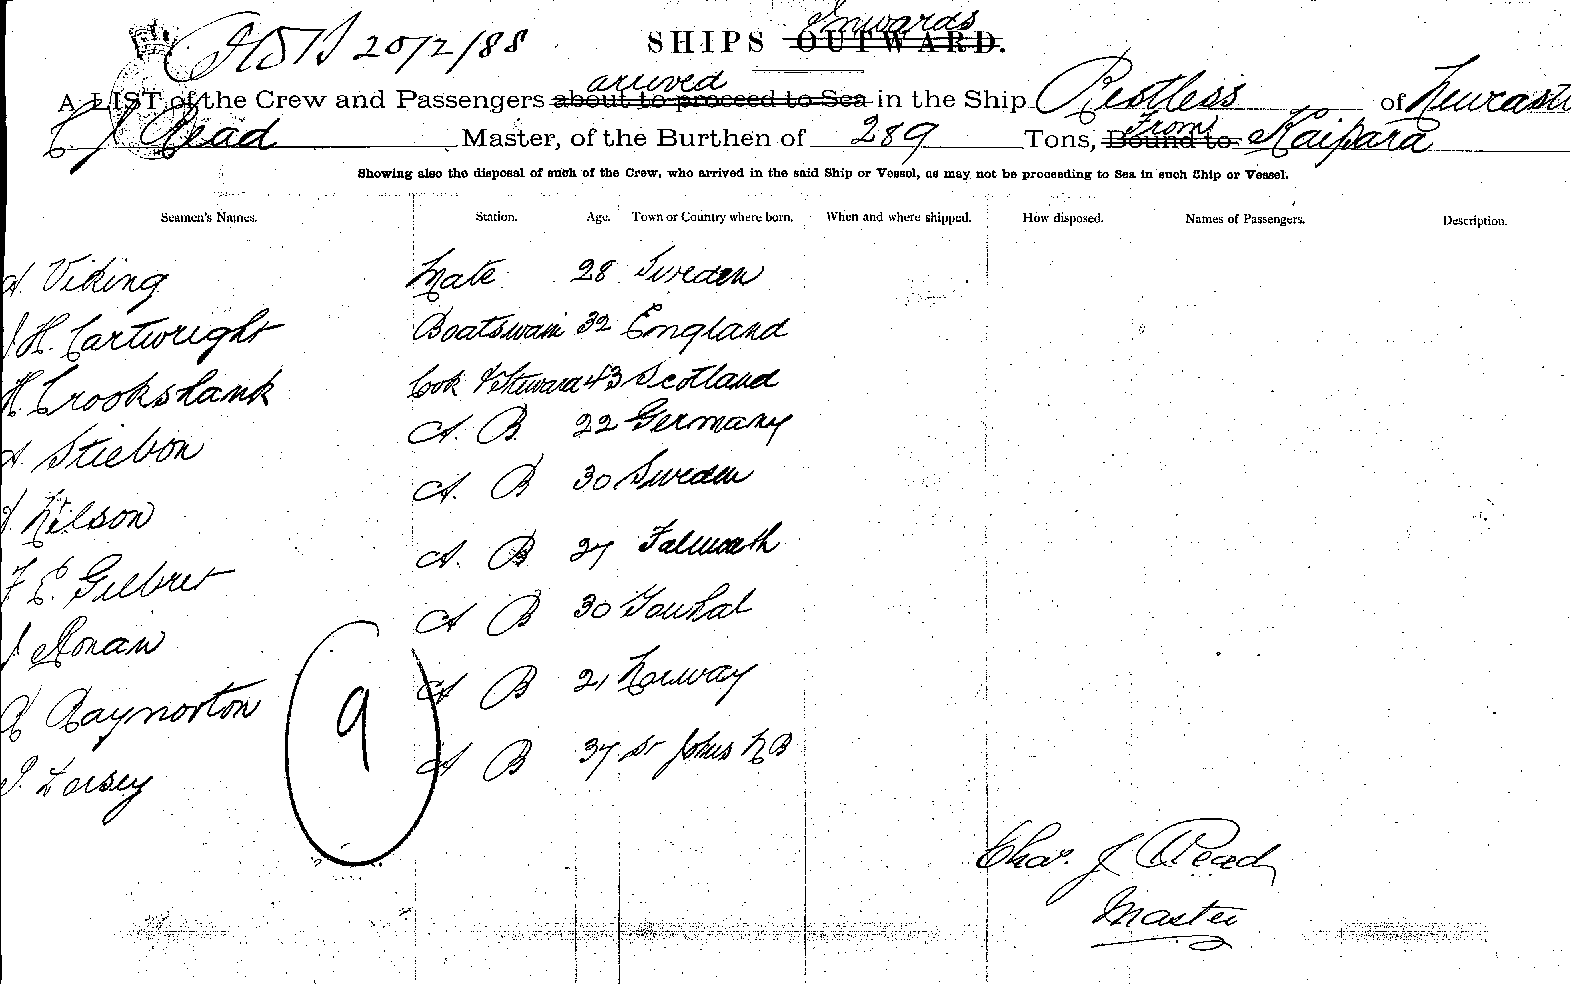 20/2/88
SHIPS OUTWARD. Inwards
A LIST of the Crew and Passengers about to proceed to Sea arrived in the Ship Restless of Newcastle
C J Read Master, of the Burthen of 289 Tons, Bound to From Kaipara
Showing also the disposal of such of the Crew, who arrived in the said Ship or Vessel, as may not be proceeding to Sea in such Ship or Vessel.
Seamen's Names. Station. Age. Town or Country where born. When and where shipped. How disposed. Names of Passengers. Description.
A. Viking Mate 28 Sweden
J H. Cartwright Boatswain 32 England
H. Crookshank Cook & Steward 43 Scotland
A Stiebon A. B. 22 Germany
Nilson A. B 30 Sweden
F E. Gilbret A. B 27 Falmouth
J Ronan A B 30 Youhal
Raynorton A B 21 Norway
Dorsey A B 37 St Johns NB
9
Chas. J Read
Master